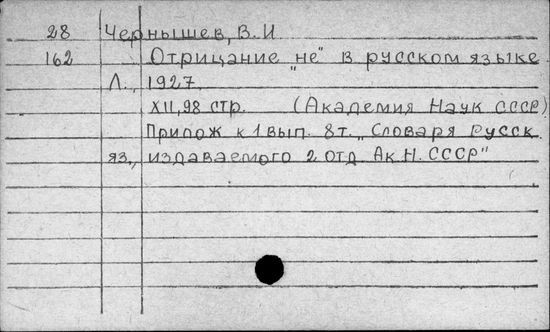 28 Чернышев, В. И
162 Отрицание „не" в русском языке.
Л., 1927.
XII, 98 стр. (Академия Наук СССР)
Прилож к 1 вып. 8 т. „Словаря Русск.
яз., издаваемого 2 отд. Ак. Н. СССР"